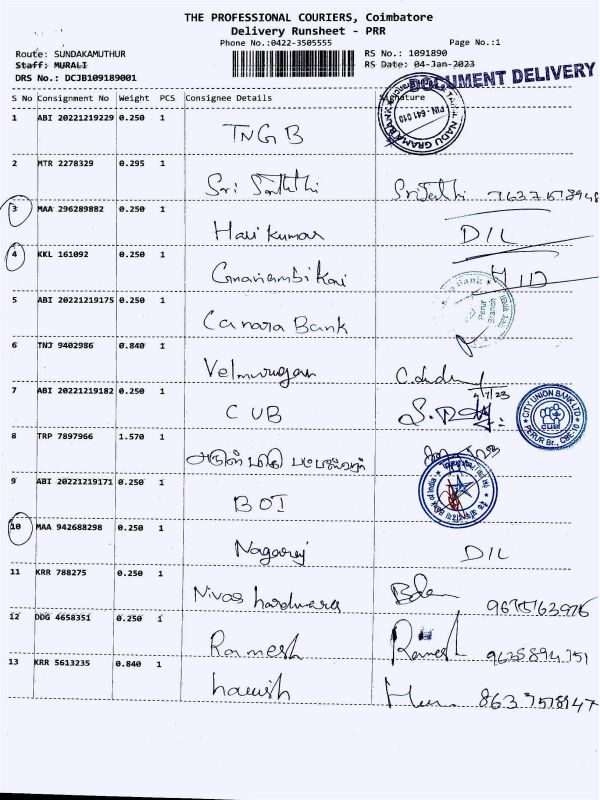 THE PROFESSIONAL COURIERS, Coimbatore
Delivery Runsheet - PRR
Phone No.:0422-3505555 Page No.:1
Route: SUNDAKAMUTHUR RS No.: 1091890
Staff: MURALI RS Date: 04-Jan-2023
DRS No.: DCJB109189001
DOCUMENT DELIVERY
S No Consignment No Weight PCS Consignee Details Signature
1 ABI 20221219229 0.250 1 TNGB
NADU GRAMA BANK PIN - 641 010
2 MTR 2278329 0.295 1 Sri Sakthi
3 MAA 296289882 0.250 1 Hari kumar DIL
4 KKL 161092 0.250 1 Gnanambikai HID
5 ABI 20221219175 0.250 1 Canara Bank
Perur Branch
6 TNJ 9402986 0.840 1 Velmurugan
7 ABI 20221219182 0.250 1 CUB
CITY UNION BANK LTD PERUR Br., CBE-10
8 TRP 7897966 1.570 1
9 ABI 20221219171 0.250 1 BOI
Bank of India
10 MAA 942688298 0.250 1 Nagaraj DIL
11 KRR 788275 0.250 1 Nivas hardware
12 DDG 4658351 0.250 1 Ramesh Ramesh 9638894751
13 KRR 5613235 0.840 1 harish 8637578947